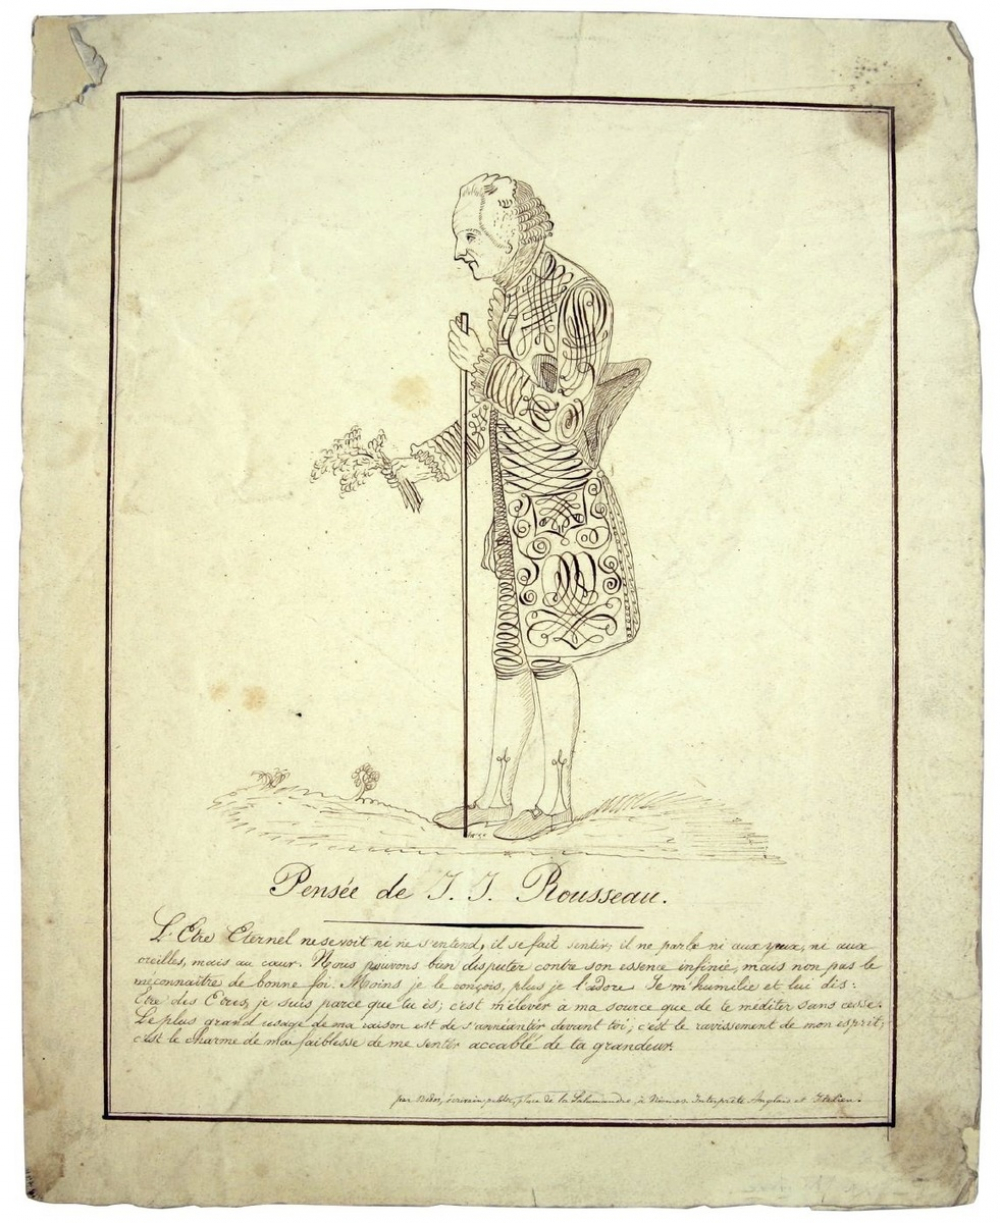 Pensée de J. J. Rousseau.
L'Etre Eternel ne se voit ni ne s'entend, il se fait sentir; il ne parle ni aux yeux, ni aux
oreilles, mais au cœur. Nous pouvons bien disputer contre son essence infinie, mais non pas le
méconnaître de bonne foi. Moins je le conçois, plus je l'adore. Je m'humilie et lui dis:
Etre des Etres, je suis parce que tu is; c'est m'élever à ma source que de te méditer sans cesse.
Le plus grand usage de ma raison est de s'anéantir devant toi; c'est le ravissement de mon esprit;
c'est le charme de ma faiblesse de me sentir accablé de ta grandeur.
par écrivain public, place de la Salamandre, à Nismes. Interprète Anglais et Italien.